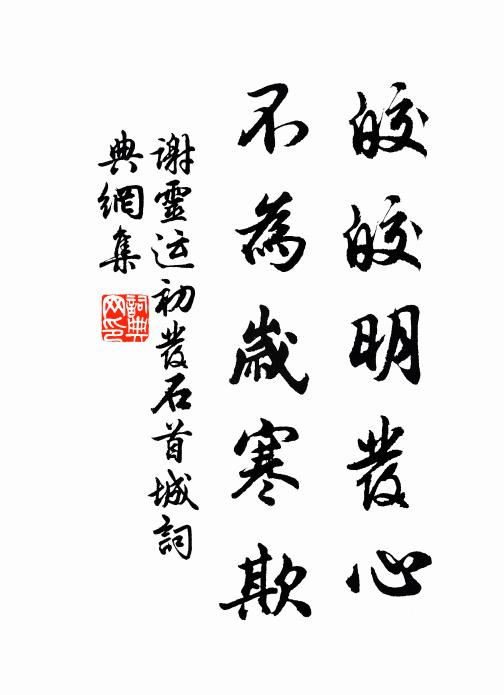 皎皎明發心
不為歲寒欺
谢靈运初發石首城詞
典網集
詞典网印